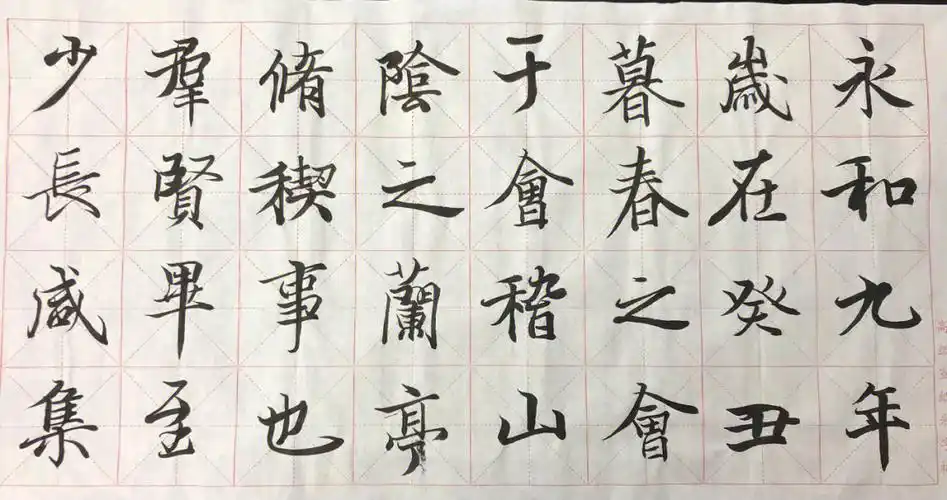 永和九年
歲在癸丑
暮春之會
于會稽山
陰之蘭亭
脩稧事也
羣賢畢至
少長咸集